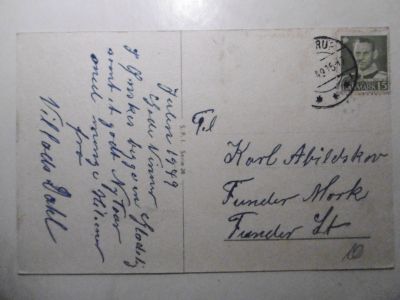 Julen 1949
Gode Venner
I Ønskes hygge en Glædelig
samt et godt Nytaar
med mange Hilsner
fra
Villads Dahl
Til
Karl Abildskov
Funder Mark
Funder St
DANMARK 15
10